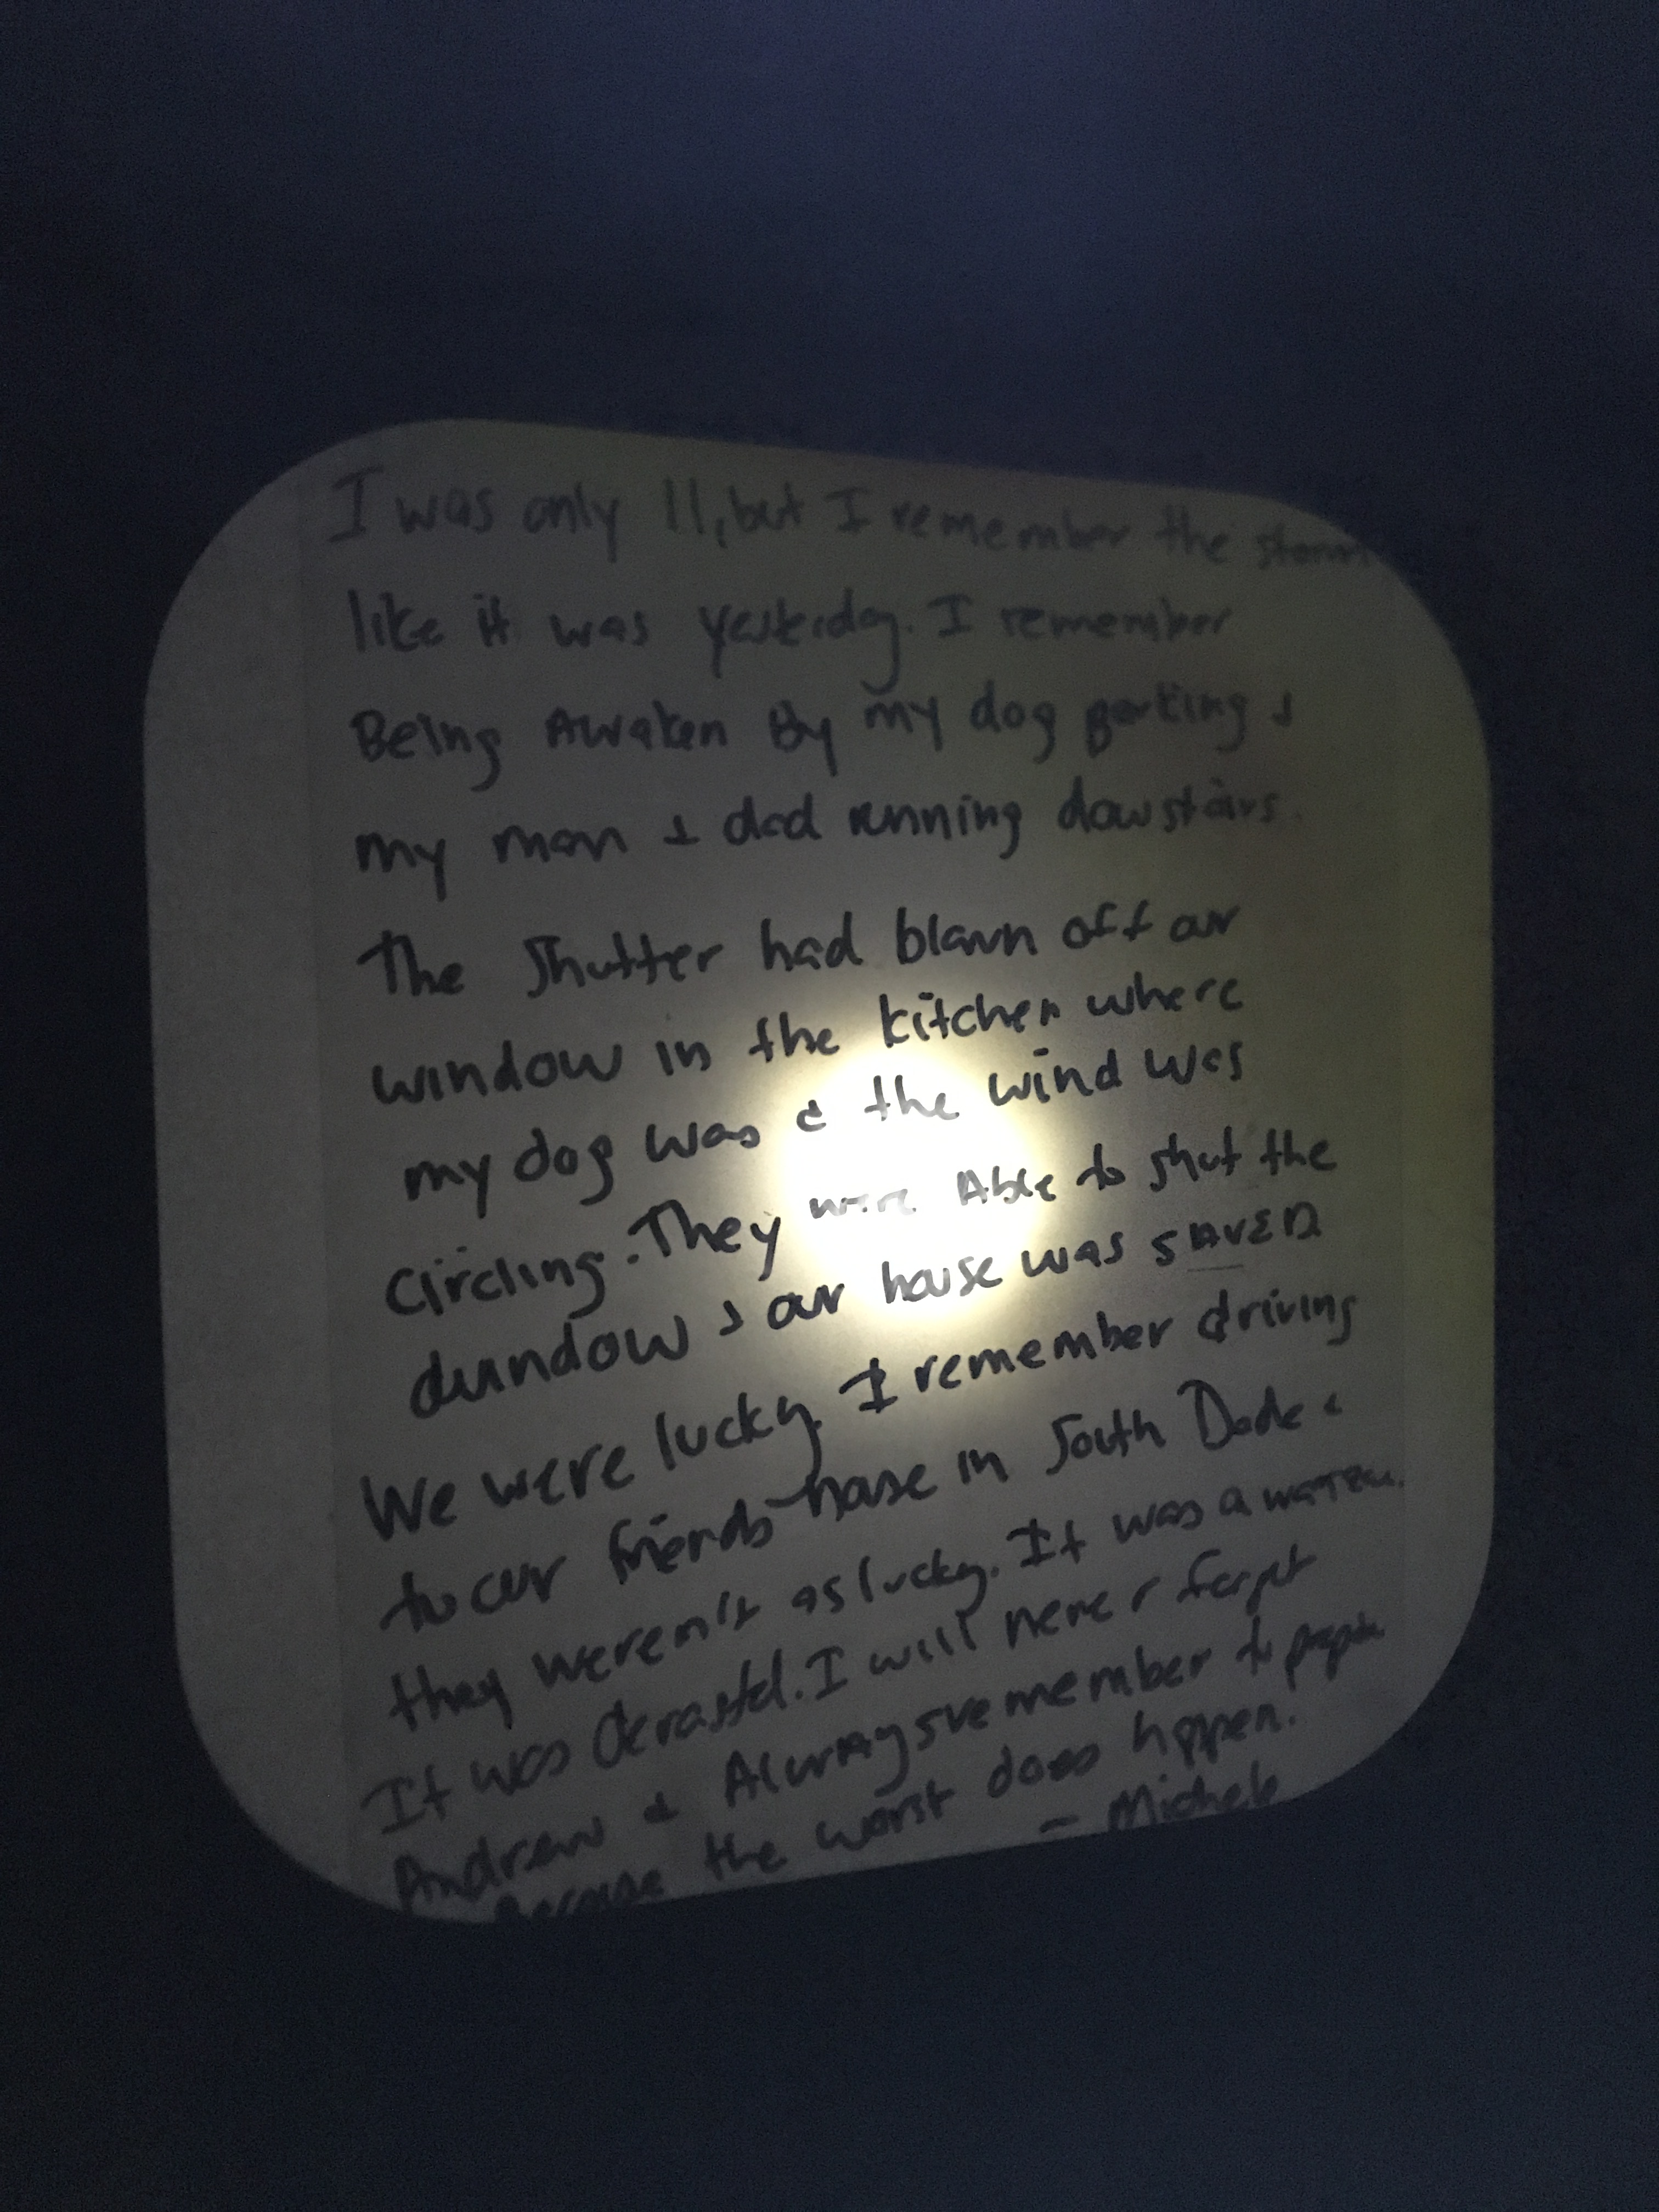 I was only 11, but I remember the storm
like it was yesterday. I remember
Being Awaken By my dog Barking &
my mom & dad running dowstairs.
The Shutter had blown off our
window in the kitchen where
my dog was & the wind was
Circling. They were Able to shut the
dundow & our house was SAVED
We were lucky. I remember driving
to our friends house in South Dade &
they weren't as lucky. It was a
It was devastd. I will never forget
Andrew & Always remember to
Because the worst does hppen.
- Michele